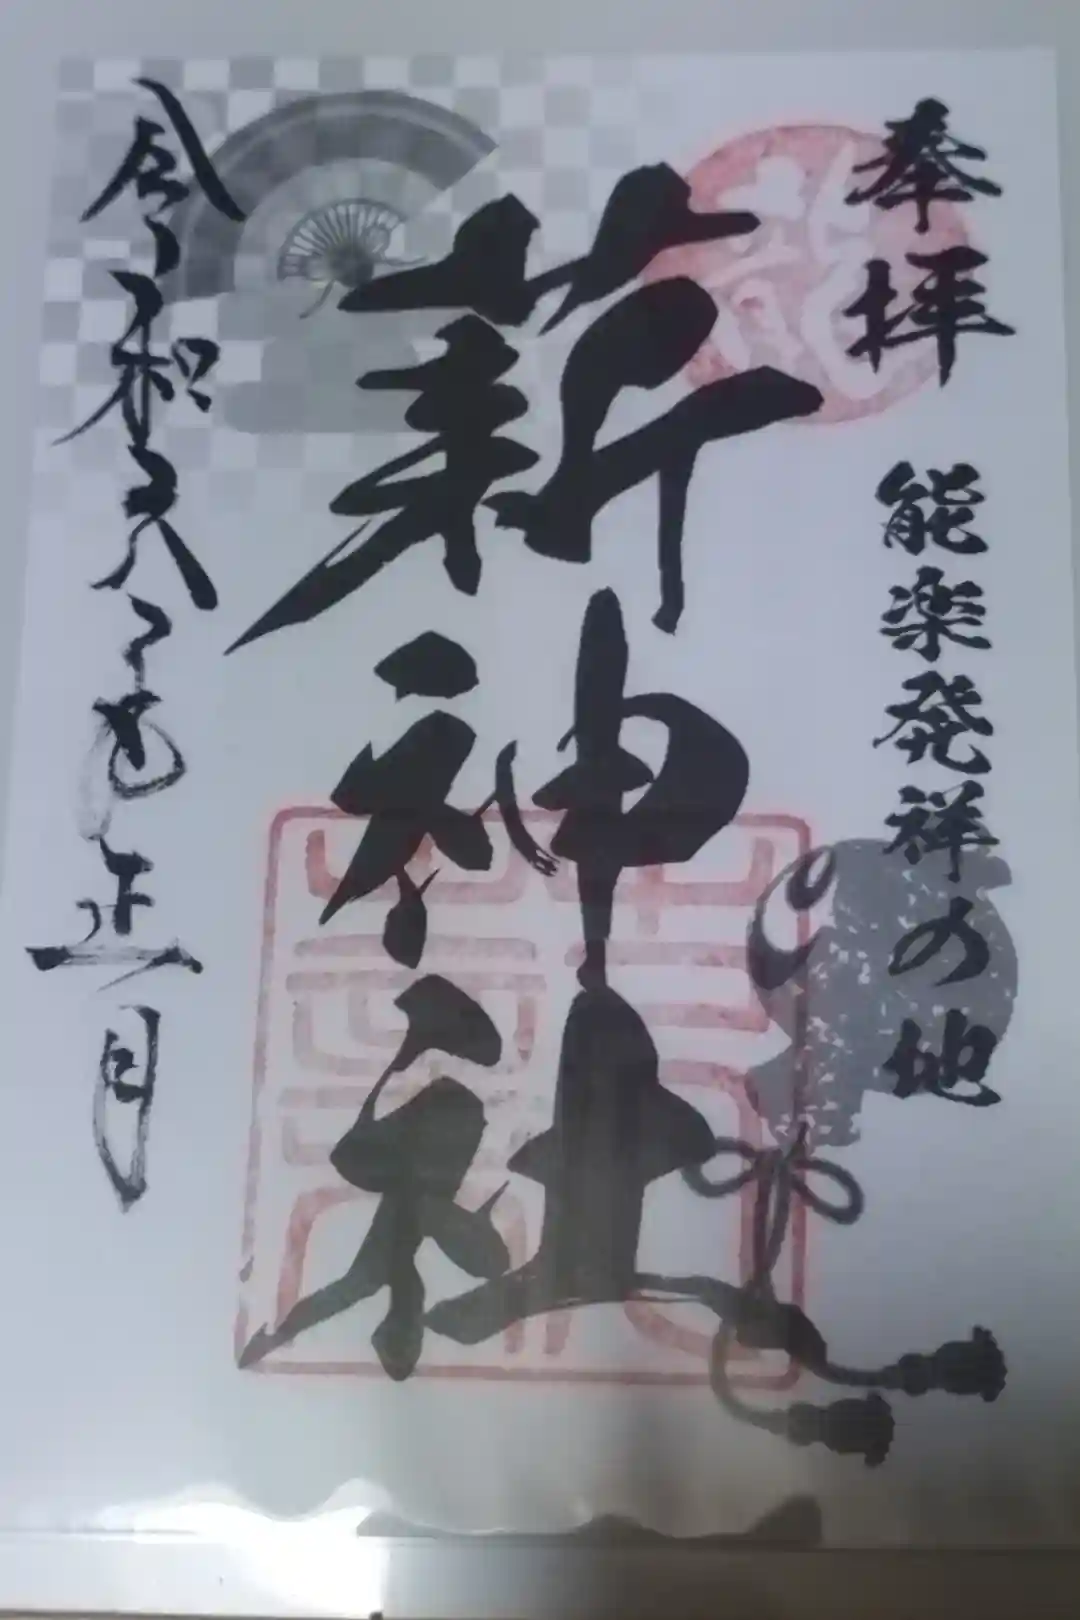 奉拝
能楽発祥の地
薪神社
令和六年正月